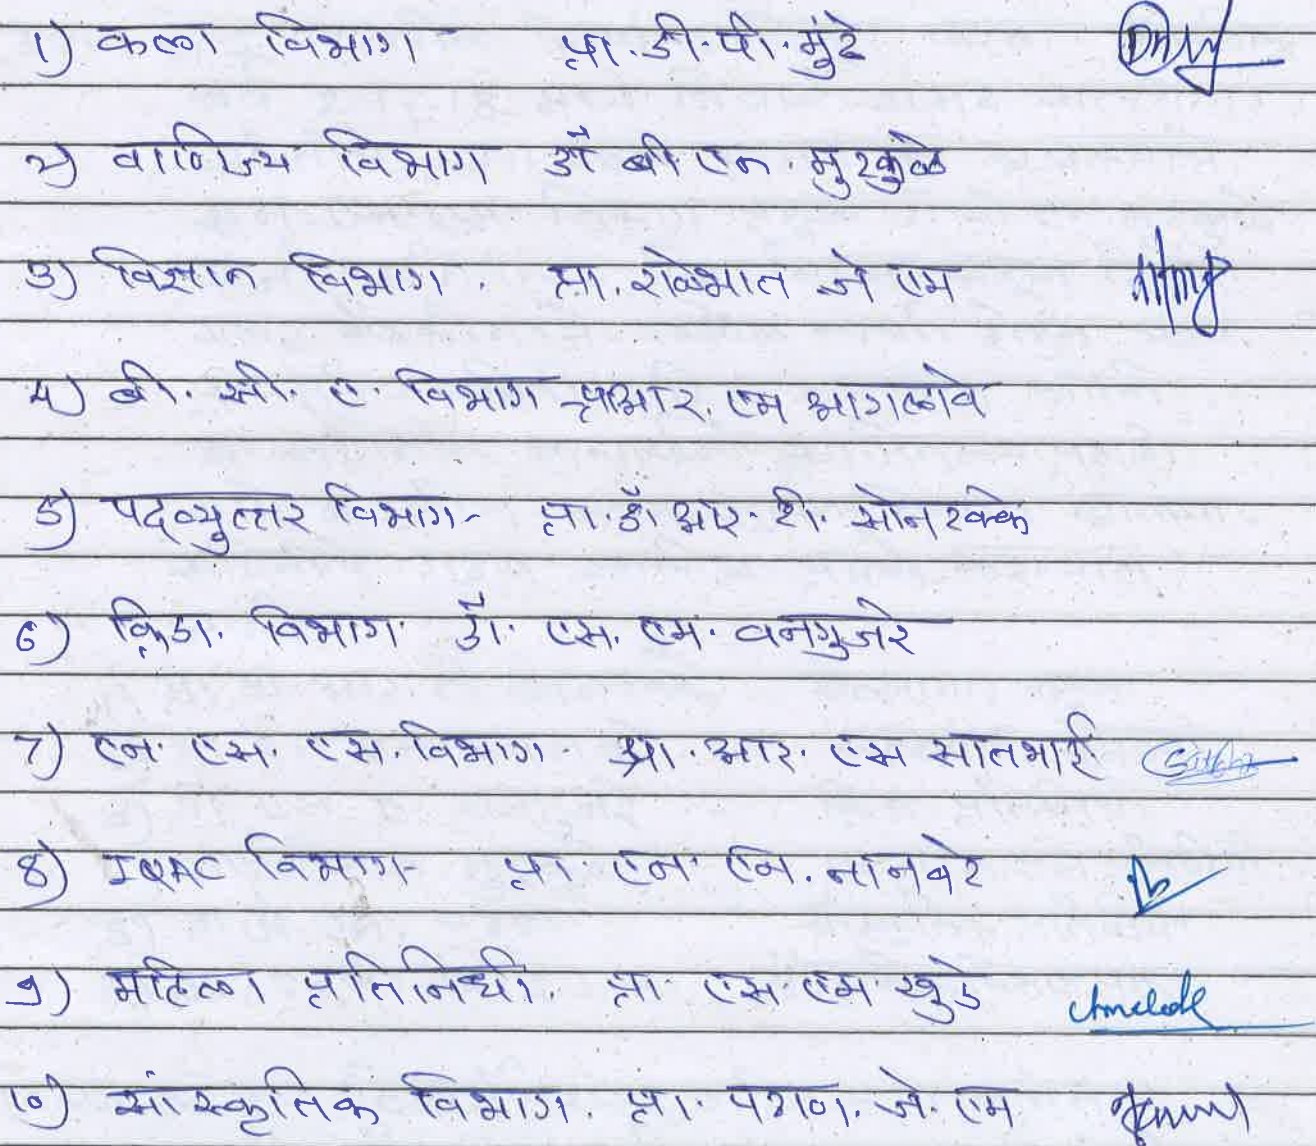 1) कला विभाग - प्रा. डी. पी. मुंडे
2) वाणिज्य विभाग डॉ बी. एन. मुरकुळे
3) विज्ञान विभाग. प्रा. रोळेभात जे एम
4) बी. सी. ए. विभाग - प्रा आर. एम आगलावे
5) पदव्युत्तर विभाग - प्रा. डॉ आर. टी. सोनटक्के
6) क्रिडा. विभाग. डॉ. एस. एम. वनगुजरे
7) एन. एस. एस. विभाग - प्रा. आर. एस सातभाई
8) IQAC विभाग - प्रा. एन. एन. नानवरे
9) महिला प्रतिनिधी. प्रा. एस. एम. खुडे
10) सांस्कृतिक विभाग. प्रा. जे. एम